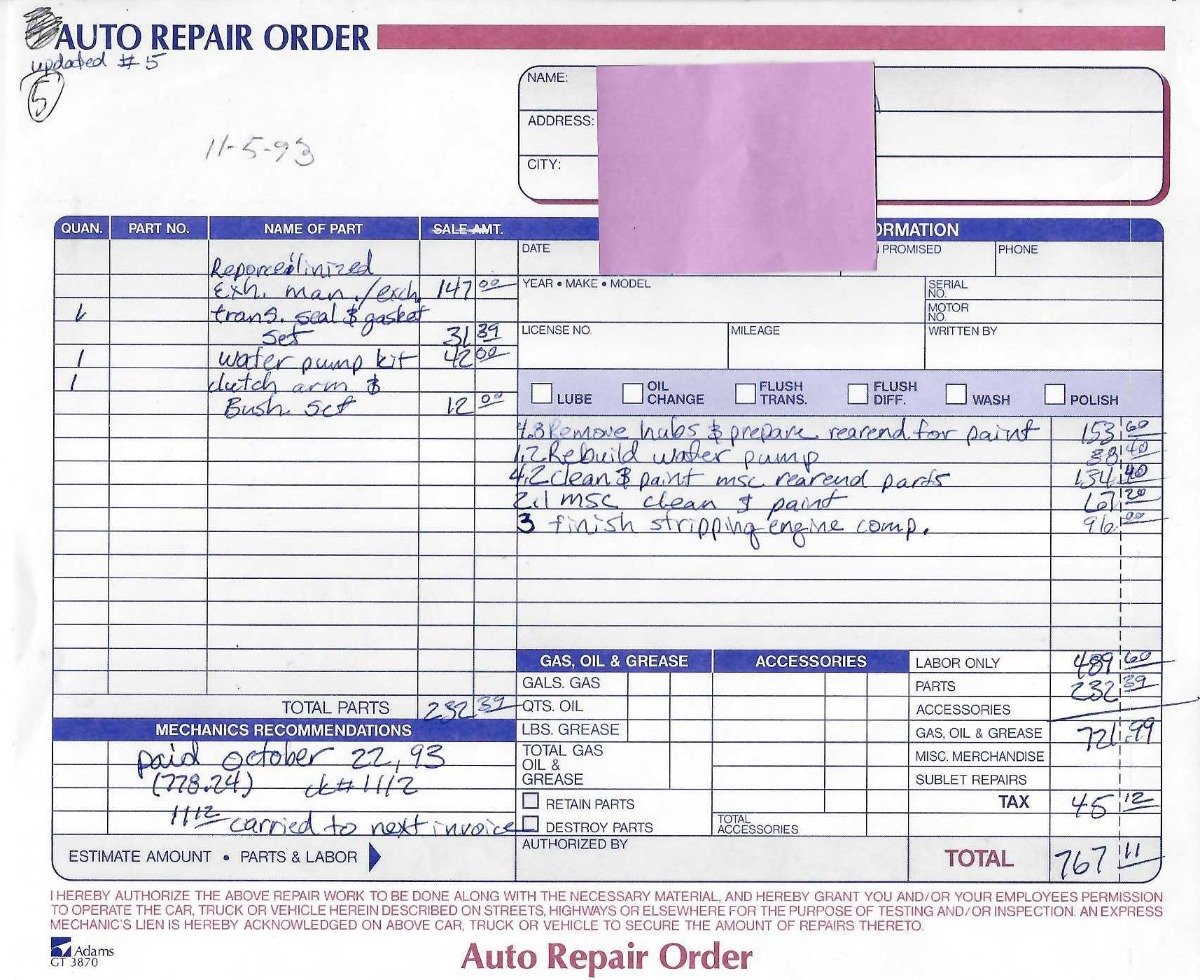 AUTO REPAIR ORDER
updated # 5
5
11-5-93
NAME:
ADDRESS:
CITY:
QUAN. PART NO. NAME OF PART SALE AMT.
ORMATION
DATE PROMISED PHONE
Reporcelinized
Exh. man./exch. 147 00
YEAR • MAKE • MODEL SERIAL NO.
MOTOR NO.
1 trans. seal & gasket
set 31 39
LICENSE NO. MILEAGE WRITTEN BY
1 water pump kit 42 00
1 clutch arm &
Bush. Set 12 00
LUBE OIL CHANGE FLUSH TRANS. FLUSH DIFF. WASH POLISH
4.8 Remove hubs & prepare rearend for paint 153 60
1.2 Rebuild water pump 38 40
4.2 clean & paint msc rearend parts 134 40
2.1 msc clean & paint 67 20
3 finish stripping engine comp. 96 00
GAS, OIL & GREASE ACCESSORIES LABOR ONLY 489 60
GALS. GAS PARTS 232 39
TOTAL PARTS 232 39 QTS. OIL ACCESSORIES
MECHANICS RECOMMENDATIONS LBS. GREASE GAS, OIL & GREASE 721.99
paid October 22, 93 TOTAL GAS OIL & GREASE MISC. MERCHANDISE
(778.24) ck# 1112 SUBLET REPAIRS
RETAIN PARTS TAX 45 12
11 12 carried to next invoice DESTROY PARTS TOTAL ACCESSORIES
ESTIMATE AMOUNT • PARTS & LABOR AUTHORIZED BY TOTAL 767 11
I HEREBY AUTHORIZE THE ABOVE REPAIR WORK TO BE DONE ALONG WITH THE NECESSARY MATERIAL, AND HEREBY GRANT YOU AND/OR YOUR EMPLOYEES PERMISSION
TO OPERATE THE CAR, TRUCK OR VEHICLE HEREIN DESCRIBED ON STREETS, HIGHWAYS OR ELSEWHERE FOR THE PURPOSE OF TESTING AND/OR INSPECTION. AN EXPRESS
MECHANIC'S LIEN IS HEREBY ACKNOWLEDGED ON ABOVE CAR, TRUCK OR VEHICLE TO SECURE THE AMOUNT OF REPAIRS THERETO.
Adams
GT 3870
Auto Repair Order